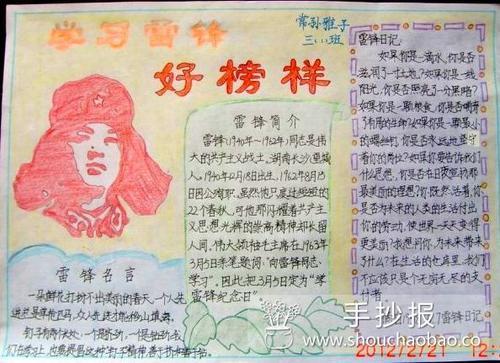 学习雷锋
好榜样
常孙雅子
三、2班
雷锋简介
雷锋（1940年-1962年）同志是伟
大的共产主义战士，湖南长沙望城
人，1940年12月18日出生，1962年8月15
日因公殉职。虽然他只度过短短的
22个春秋，可他那闪耀着共产主
义思想光辉的崇高精神却长留
人间，伟大领袖毛主席在1963年
3月5日亲笔题词，“向雷锋同志
学习”。因此，把3月5日定为“学
雷锋纪念日”
雷锋名言
一朵鲜花打扮不出美丽的春天，一个人先
进总是单枪匹马，众人先进才能移山填海。
雷锋日记：
如果你是一滴水，你是否
滋润了一寸土地？如果你是一线
阳光，你是否照亮了一分黑暗？
如果你是一颗粮食，你是否哺育
了有用的生命？如果你是一颗最小
的螺丝钉，你是否永远地坚守
着你的岗位？如果你要告诉我们
什么思想，你是否在日夜宣扬那
最美丽的理想？你既然活着，你
是否为未来的人类的生活付出
你的劳动，使世界一天天变得
更美丽？我想问你，为未来带来
了什么？在生活的仓库里，我们
不应该只是个无穷无尽的支
付者。
雷锋日记
手抄报
www.shouchaobao.co
2012/2/21